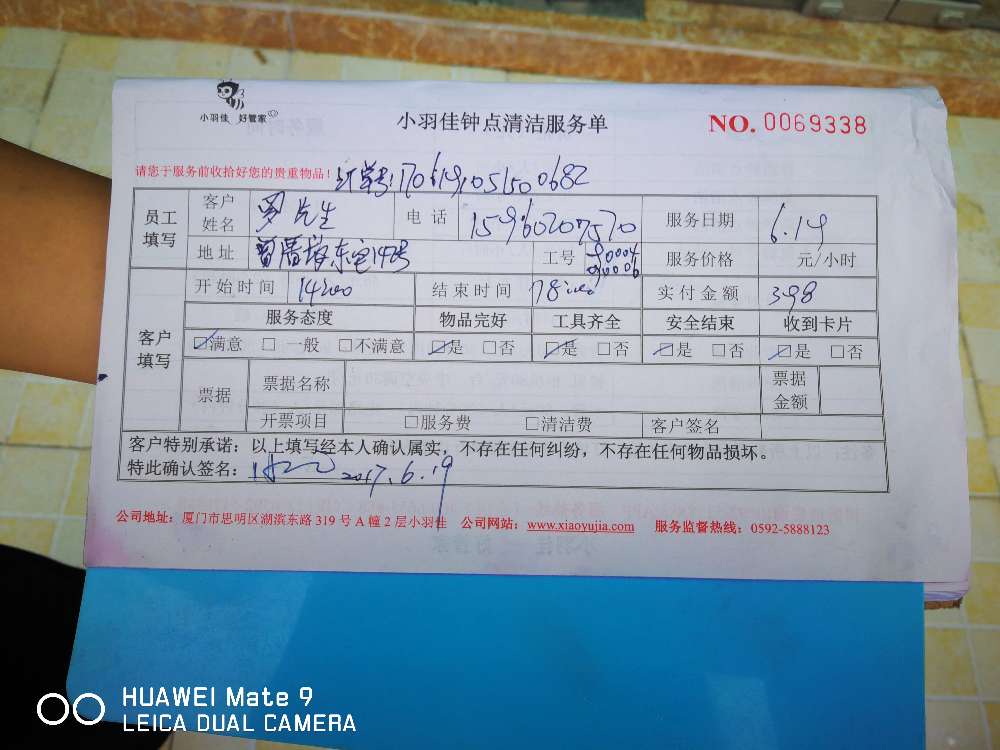 小羽佳 好管家
小羽佳钟点清洁服务单
NO. 0069338
请您于服务前收拾好您的贵重物品！ 订单号:1706191051500682
员工填写 客户姓名 罗先生 电话 15960207570 服务日期 6.19
地址 东宅142号 工号 90004 90006 服务价格 元/小时
客户填写 开始时间 14:00 结束时间 18:00 实付金额 398
服务态度 物品完好 工具齐全 安全结束 收到卡片
☑满意 □一般 □不满意 ☑是 □否 ☑是 □否 ☑是 □否 ☑是 □否
票据 票据名称 票据金额
开票项目 □服务费 □清洁费 客户签名
客户特别承诺：以上填写经本人确认属实，不存在任何纠纷，不存在任何物品损坏。
特此确认签名： 2017.6.19
公司地址：厦门市思明区湖滨东路 319 号 A 幢 2 层小羽佳 公司网站：www.xiaoyujia.com 服务监督热线：0592-5888123
HUAWEI Mate 9
LEICA DUAL CAMERA